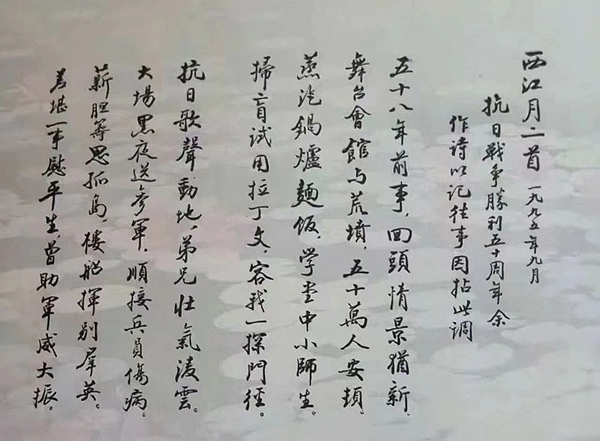 西江月二首 一九九五年九月
抗日戰争勝利五十周年余
作诗以记往事因拈此调
五十八年前事，回頭情景猶新，
舞台會館与荒墳，五十萬人安頓，
蒸汽鍋爐麵飯，学堂中小師生。
掃盲试用拉丁文，容我一探門徑。
抗日歌聲動地，弟兄壮氣凌雲。
大场黑夜送参軍，順接兵員傷病。
薪胆筹思孤岛，楼船揮别羣英。
差堪一事慰平生，曾助軍威大振。